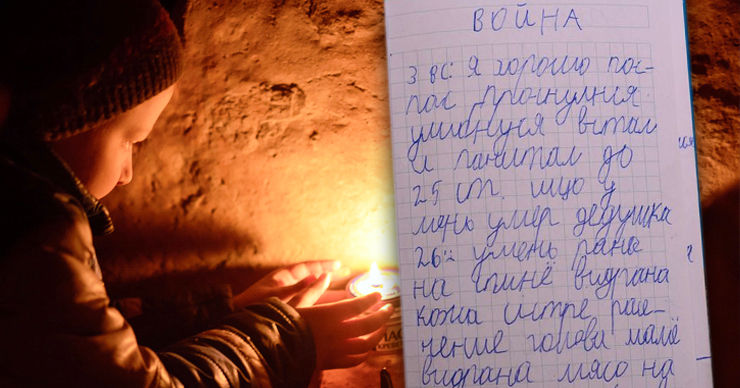 ВОЙНА
3 вс: Я хорошо пос-
пас прочнулися
улибнуся встал
и пачитал до
25 ст. ищо у
мень умер дедушка
26 умень рана
на спинё видрана
кожа
чение голови мамё
видрана мясо на